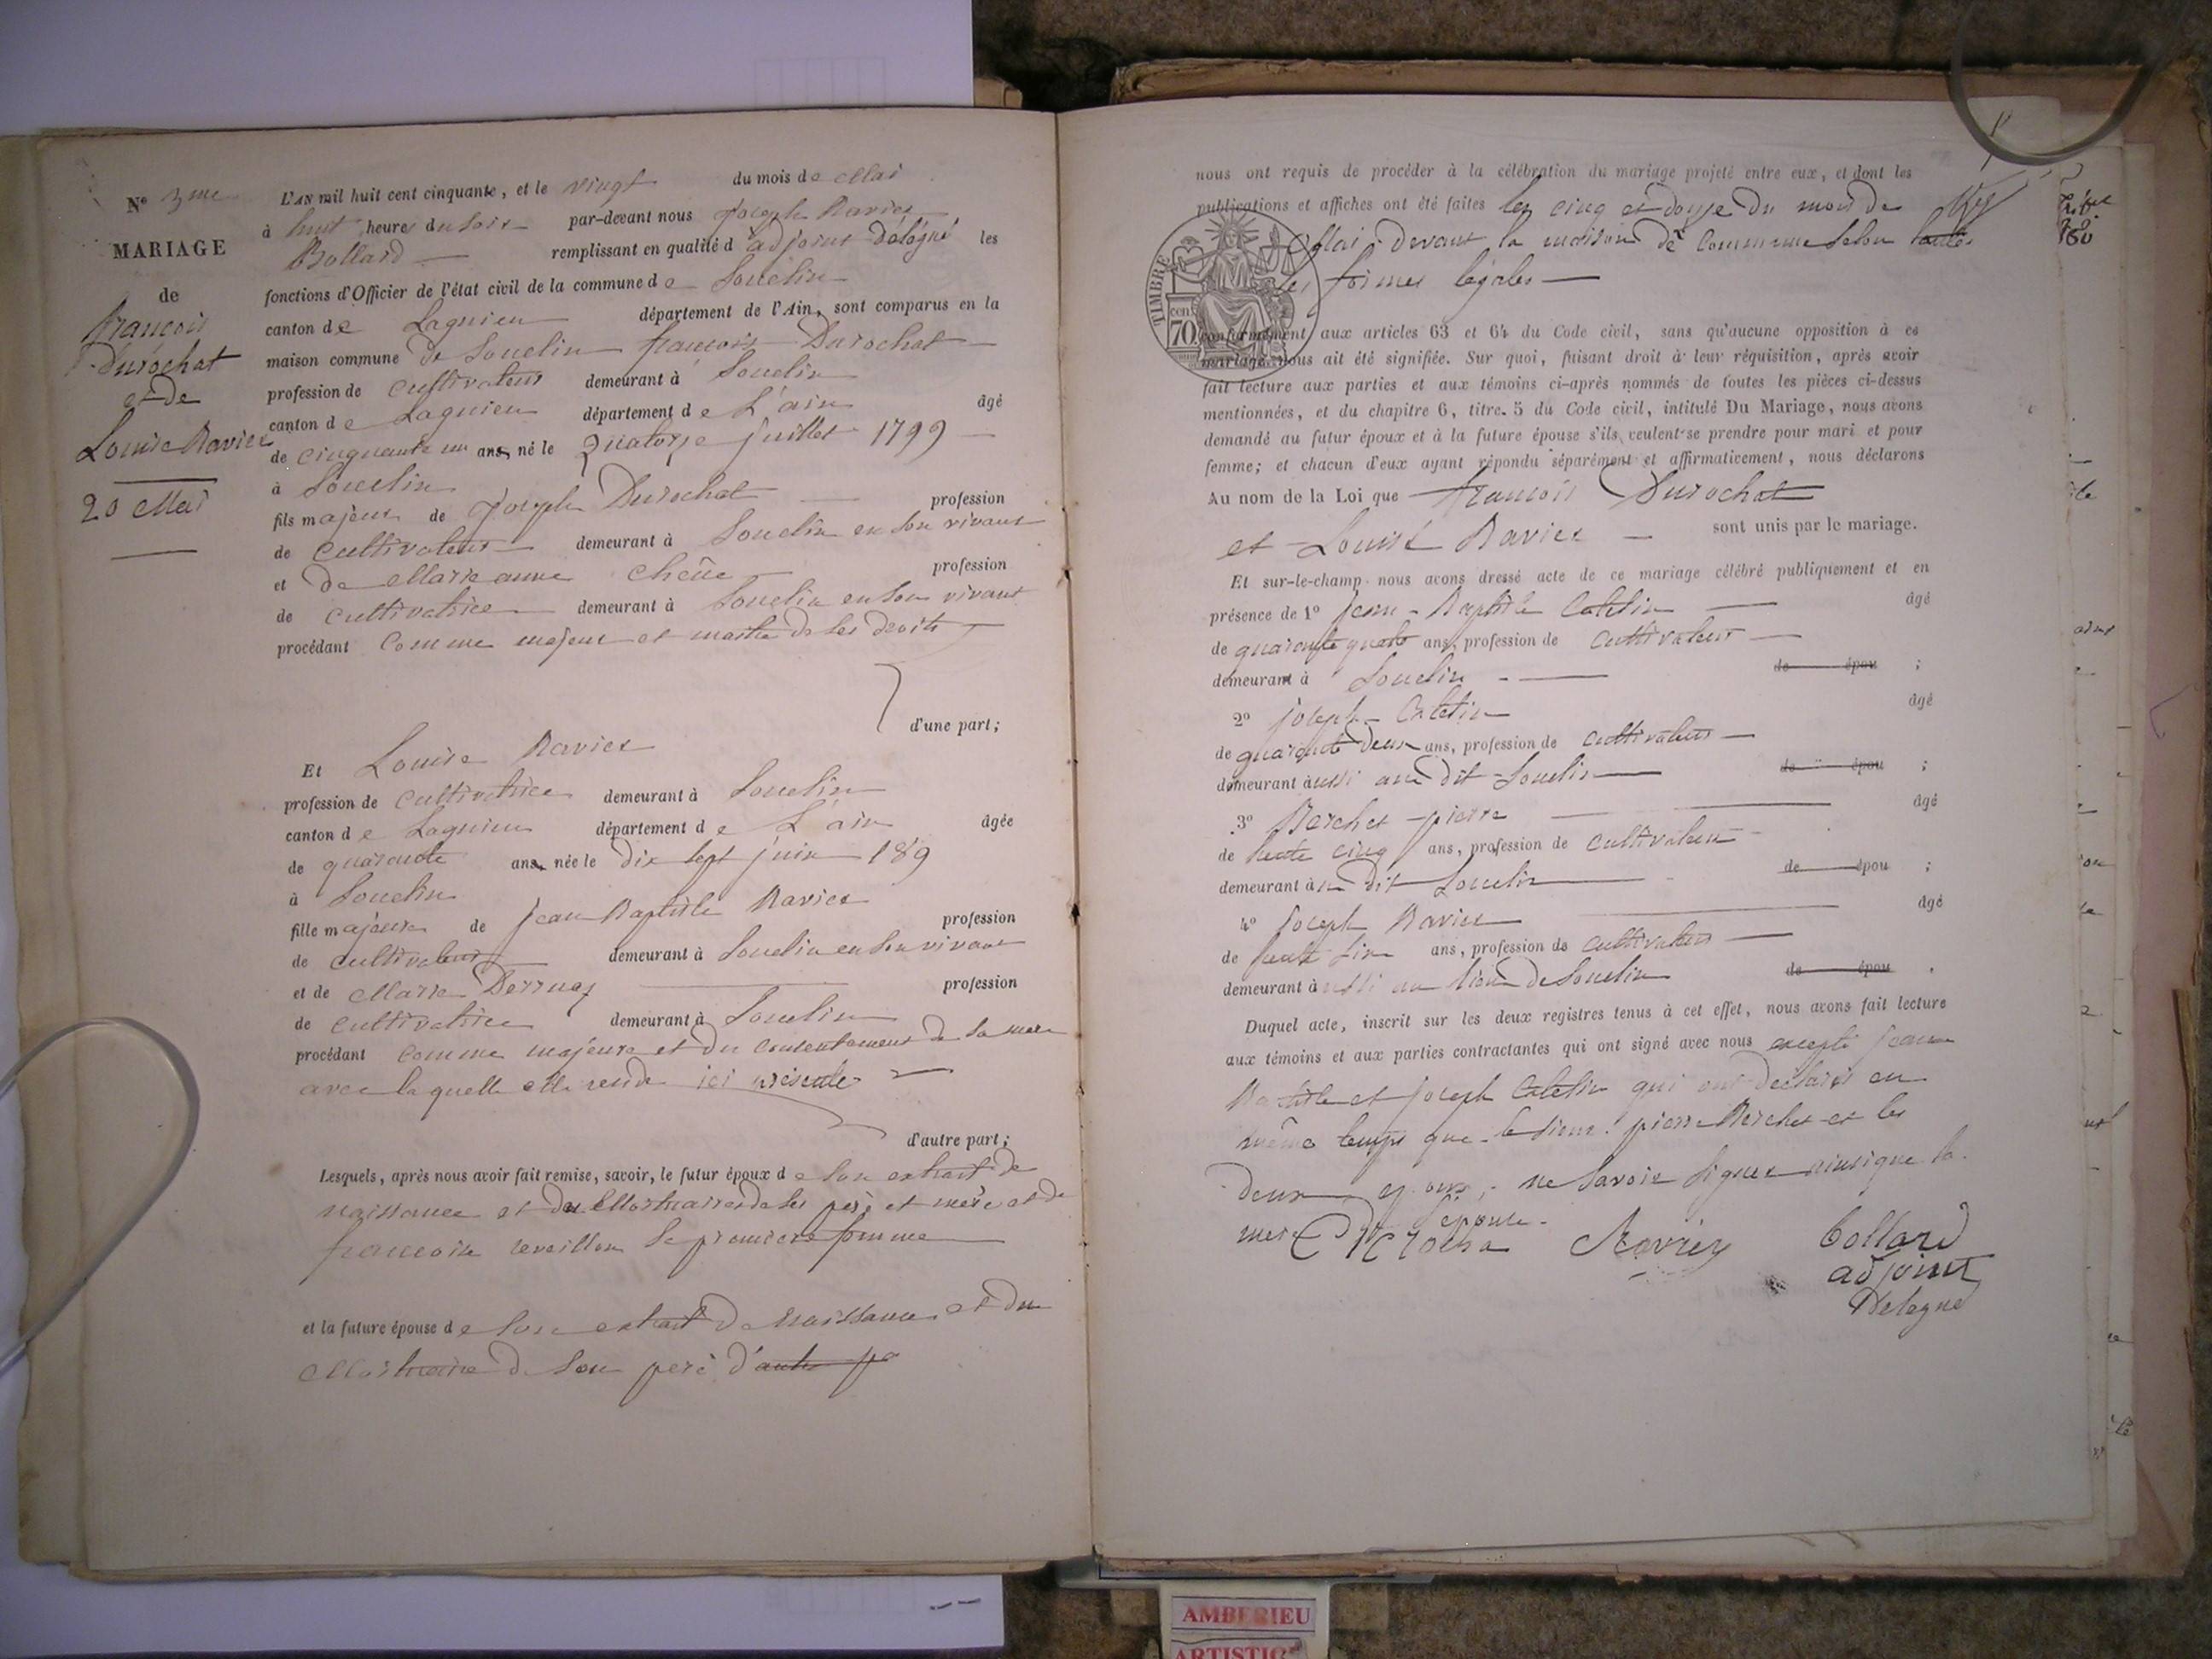 N° 3me
MARIAGE
de
François
Durochat
et de
Louise Ravier
20 Mai
L'AN mil huit cent cinquante, et le vingt du mois de Mai
à huit heures du soir par-devant nous Joseph Ravier
Bollard remplissant en qualité d'adjoint délégué les
fonctions d'Officier de l'état civil de la commune de Souclin
canton de Lagnieu département de l'Ain, sont comparus en la
maison commune de Souclin françois Durochat
profession de cultivateur demeurant à Souclin
canton de Lagnieu département de L'ain âgé
de cinquante un ans, né le Quatorze juillet 1799
à Souclin
fils majeur de Joseph Durochat profession
de cultivateur demeurant à Souclin en son vivant
et de Marie anne chêne profession
de cultivatrice demeurant à Souclin en son vivant
procédant comme majeur et maitre de ses droits
d'une part;
Et Louise Ravier
profession de cultivatrice demeurant à Souclin
canton de Lagnieu département de L'ain âgée
de quarante ans, née le dix sept juin 189
à Souclin
fille majeure de jean Baptiste Ravier profession
de cultivateur demeurant à Souclin en son vivant
et de Marie profession
de cultivatrice demeurant à Souclin
procédant comme majeure et du consentement de sa mere
avec laquelle elle reside ici présente
d'autre part;
Lesquels, après nous avoir fait remise, savoir, le futur époux de son extrait de
naissance et des Mortuaires de ses père et mère et de
francoise se premiere femme
et la future épouse de son extrait de Naissance et du
Mortuaire de son peré d'autre pa
nous ont requis de procéder à la célébration du mariage projeté entre eux, et dont les
publications et affiches ont été faites les cinq et douze du mois de
Mai devant la maison de commune selon
les formes légales
TIMBRE
70 cent
conformément aux articles 63 et 64 du Code civil, sans qu'aucune opposition à ce
mariage nous ait été signifiée. Sur quoi, faisant droit à leur réquisition, après avoir
fait lecture aux parties et aux témoins ci-après nommés de toutes les pièces ci-dessus
mentionnées, et du chapitre 6, titre 5 du Code civil, intitulé Du Mariage, nous avons
demandé au futur époux et à la future épouse s'ils veulent se prendre pour mari et pour
femme; et chacun d'eux ayant répondu séparément et affirmativement, nous déclarons
Au nom de la Loi que francois Durochat
et Louise Ravier sont unis par le mariage.
Et sur-le-champ nous avons dressé acte de ce mariage célébré publiquement et en
présence de 1° jean-Baptiste Catelin âgé
de quarante quatre ans, profession de cultivateur
demeurant à Souclin de épou ;
2° joseph Catelin âgé
de quarante deux ans, profession de cultivateur
demeurant aussi au dit Souclin de épou ;
3° Berchet pierre âgé
de trente cinq ans, profession de cultivateur
demeurant au dit Souclin de épou ;
4° joseph Ravier âgé
de trente six ans, profession de cultivateur
demeurant aussi au lieu de Souclin de épou .
Duquel acte, inscrit sur les deux registres tenus à cet effet, nous avons fait lecture
aux témoins et aux parties contractantes qui ont signé avec nous excepté jean
Batiste et joseph Catelin qui ont declaré en
même temps que le sieur pierre Berchet et les
deux epoux, ne savoir signer ainsi que la
mere épouse
Ravier
bollard
adjoint
Delegue
AMBERIEU
ARTISTIC